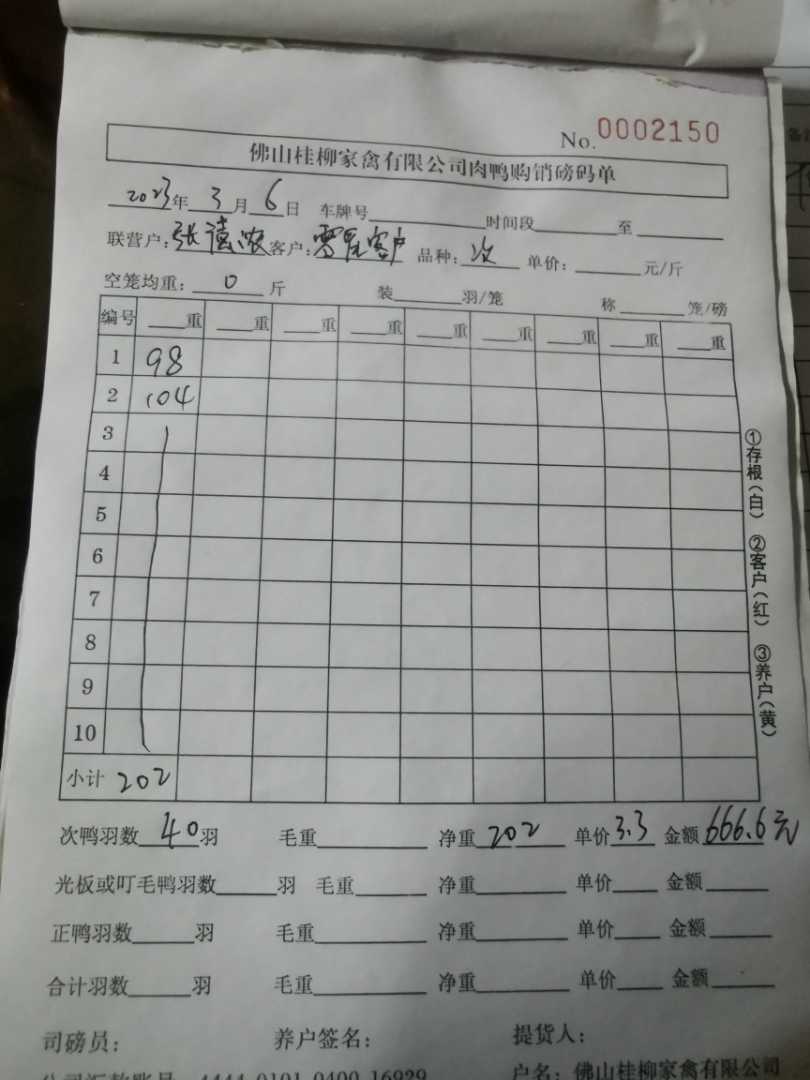 No. 0002150
佛山桂柳家禽有限公司肉鸭购销磅码单
2023年 3月 6日 车牌号 时间段 至
联营户：张德浓 客户：零星客户 品种：次 单价： 元/斤
空笼均重：0斤 装 羽/笼 称 笼/磅
编号 重 重 重 重 重 重 重 重 重
1 98
2 104
3
4
5
6
7
8
9
10
小计 202
次鸭羽数40羽 毛重 净重202 单价3.3 金额666.6元
光板或叮毛鸭羽数 羽 毛重 净重 单价 金额
正鸭羽数 羽 毛重 净重 单价 金额
合计羽数 羽 毛重 净重 单价 金额
司磅员： 养户签名： 提货人：
公司汇款账号 4444 0101 0400 16929 户名：佛山桂柳家禽有限公司
①存根(白) ②客户(红) ③养户(黄)